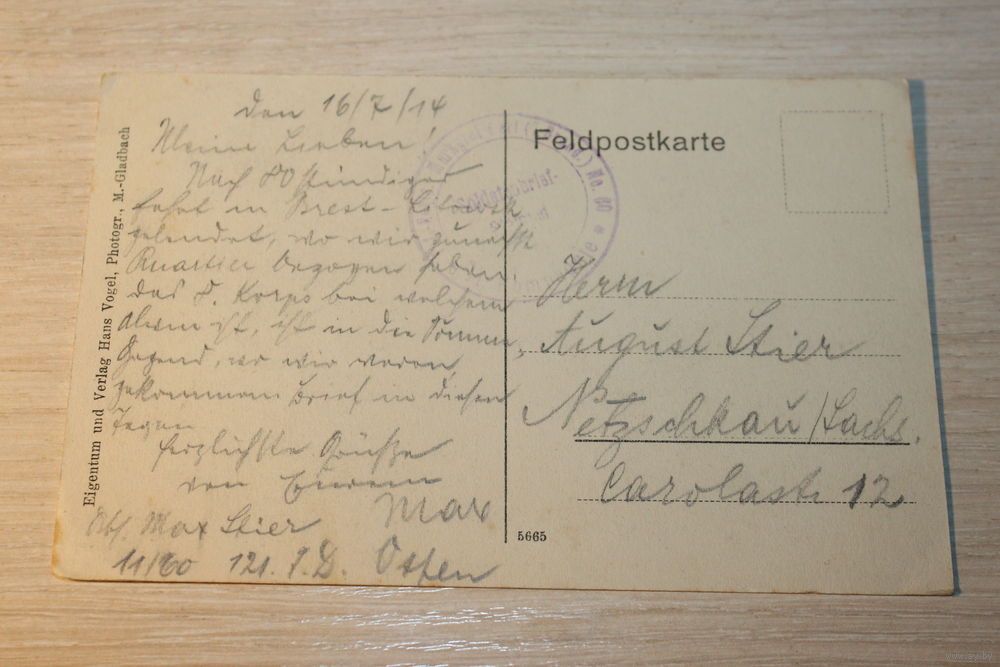 den 16/7/14
Meine Lieben!
Nach 80 stündiger
fahrt in Brest-Litowsk
gelandet, wo wir zunächst
Quartier bezogen haben.
das 8. Korps bei welchem
ist, ist in die Somme,
Gegend, wo wir waren,
gekommen Brief in diesen
Tagen
herzlichste Grüße
von Eurem
Max
Abs. Max Stier
11/60 121. I.D. Osten
Eigentum und Verlag Hans Vogel, Photogr., M.-Gladbach
Feldpostkarte
No. 60
Soldatenbrief
Herrn
August Stier
Netzschkau/Sachs.
Carolastr. 12
5665